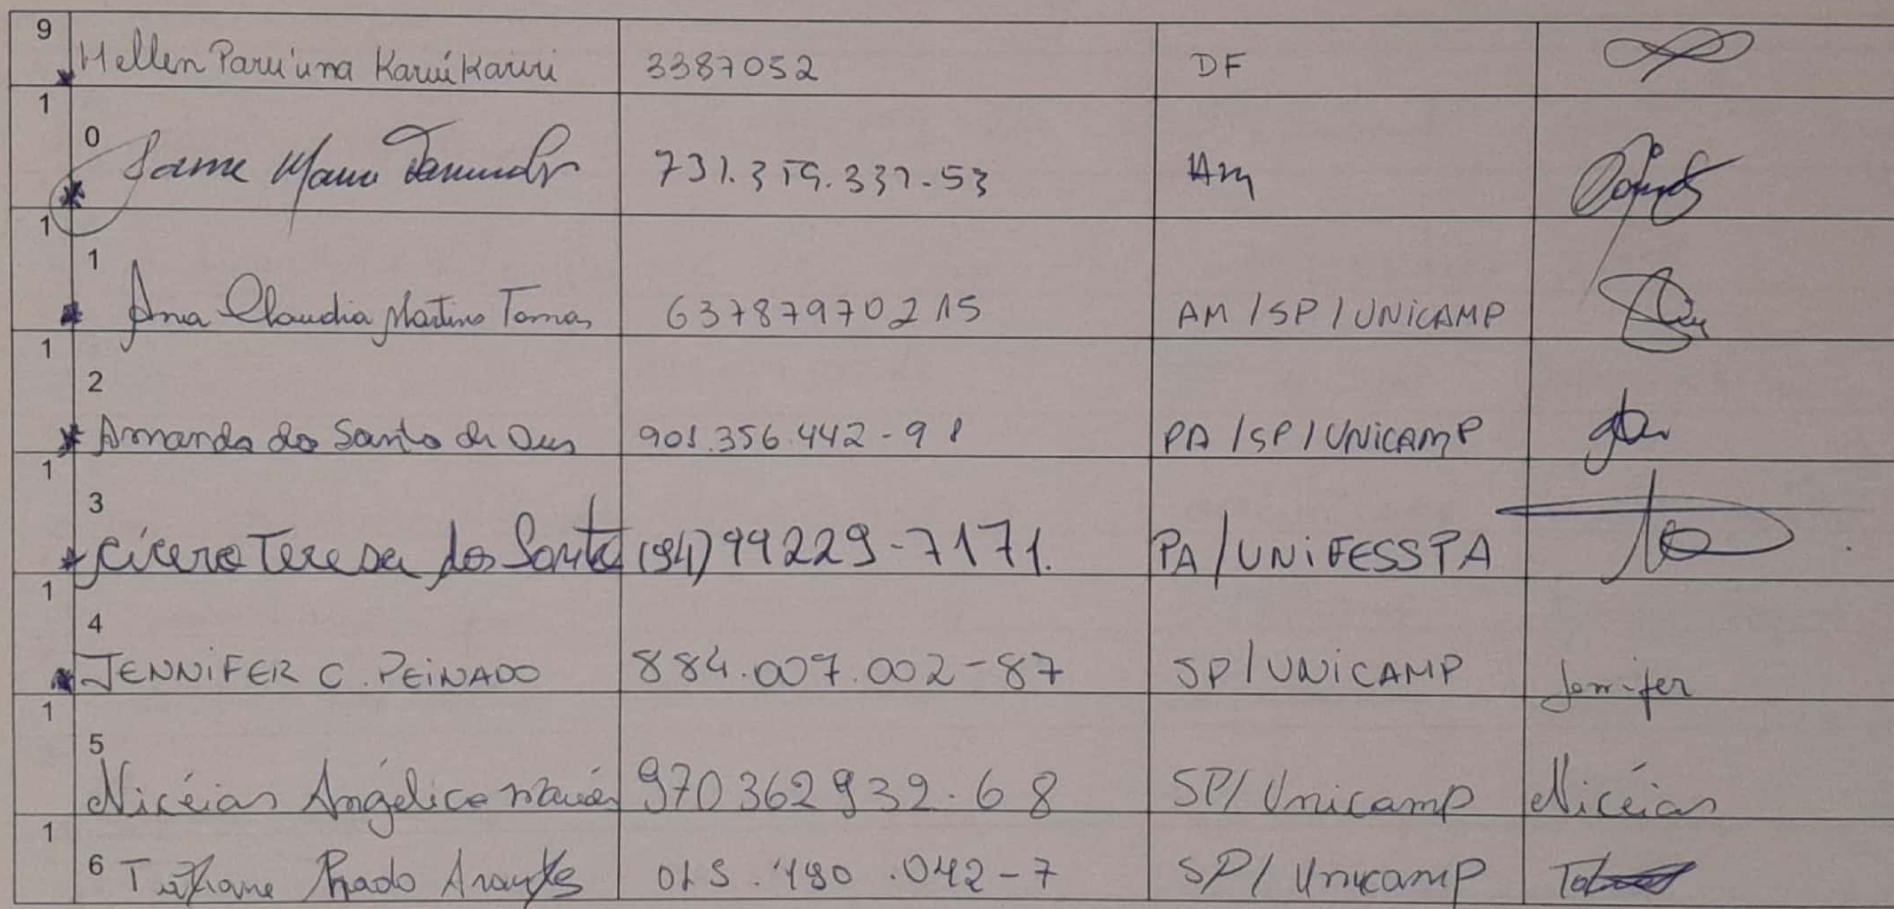 9 Hellen Pariuna Karuí Kariri 3387052 DF
10 Maria 731.359.337-53 Am
11 Ana Claudia Martins Tomas 63787970215 AM / SP / UNICAMP
12 Amanda dos Santos de Deus 901.356.442-98 PA / SP / UNICAMP
13 Cícero Teresa dos Santos (94) 99229-7171. PA / UNIFESSPA
14 JENNIFER C. PEINADO 884.007.002-87 SP / UNICAMP Jennifer
15 Nicéias Angélica 970362932-68 SP / Unicamp Nicéias
16 Prado SP / Unicamp